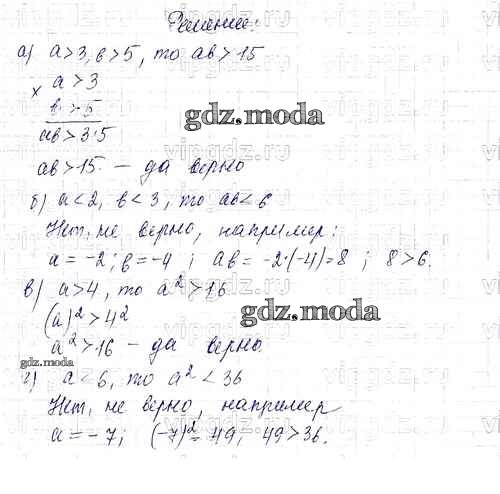 Решение:
а) a>3, в>5, то aв>15
× a>3
в>5
aв>3·5
gdz.moda
aв>15. — да верно
б) a<2, в<3, то aв<6
Нет, не верно, например:
a=-2; в=-4; aв=-2·(-4)=8; 8>6.
в) a>4, то a²>16
(a)²>4²
gdz.moda
a²>16 — да верно.
gdz.moda
г) a<6, то a²<36
Нет, не верно, например
a=-7; (-7)²=49; 49>36.